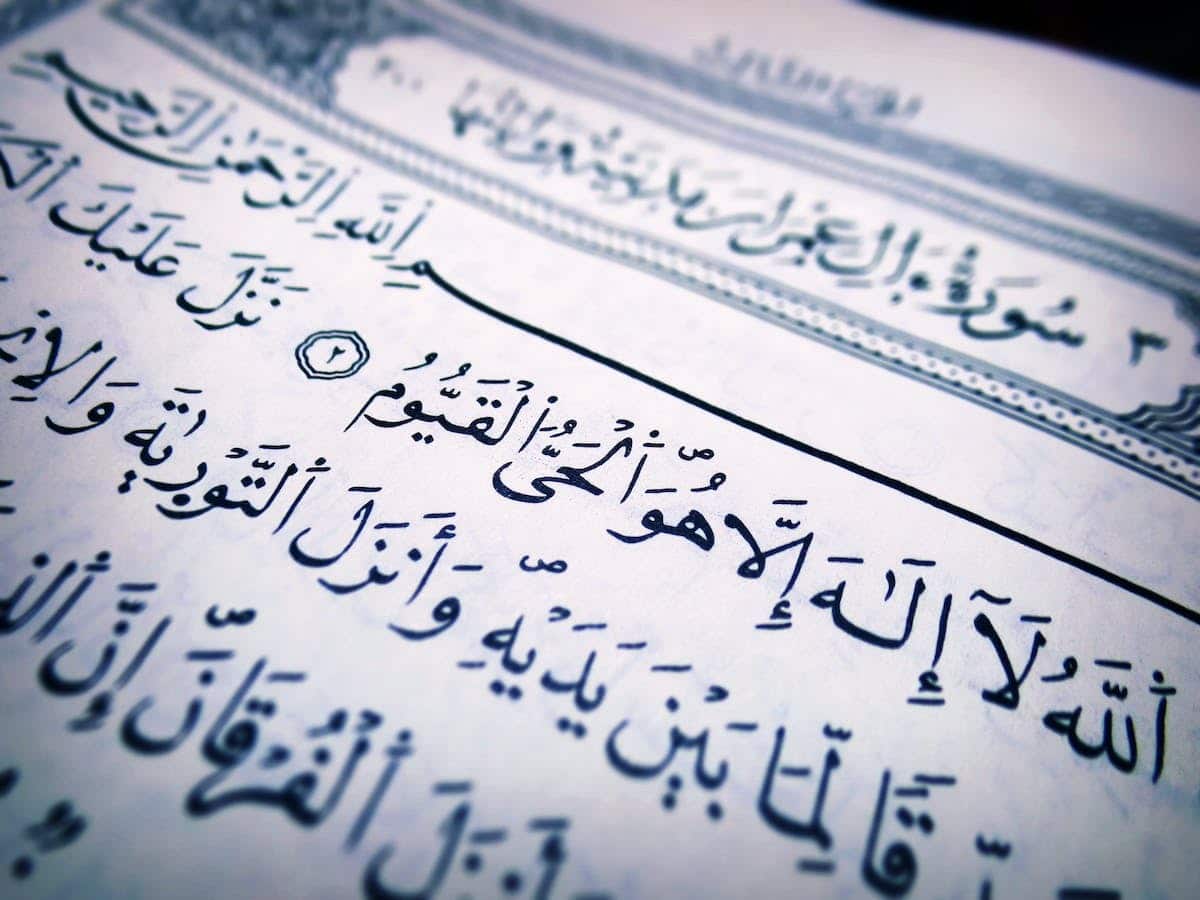 ٣ سُورَةُ ءَالِ عِمْرَانَ مَدَنِيَّةٌ وَءَايَاتُهَا ٢٠٠
بِسْمِ ٱللَّهِ ٱلرَّحْمَٰنِ ٱلرَّحِيمِ
ٱللَّهُ لَآ إِلَٰهَ إِلَّا هُوَۖ ٱلْحَىُّ ٱلْقَيُّومُ ٢ نَزَّلَ عَلَيْكَ
قًا لِّمَا بَيْنَ يَدَيْهِۖ وَأَنزَلَ ٱلتَّوْرَىٰةَ
أَنزَلَ ٱلْفُرْقَانَۖ إِنَّ